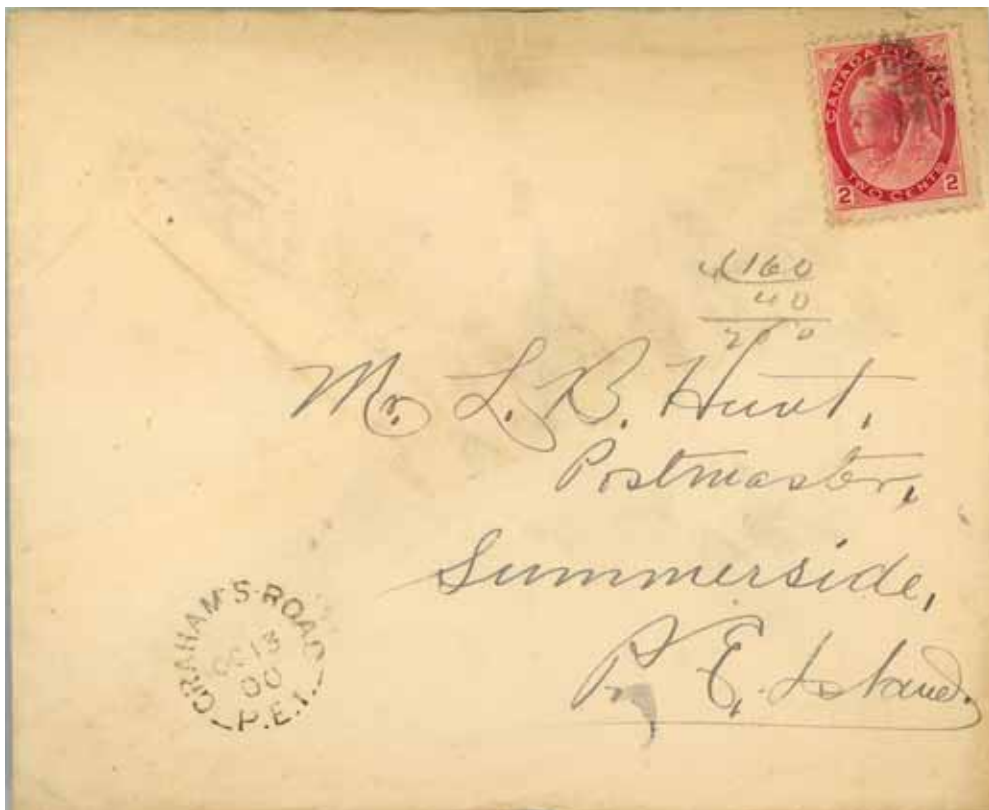 CANADA POSTAGE
TWO CENTS
2 2
160
40
Mr. L. B. Hunt,
Postmaster,
Summerside,
P. E. Island.
GRAHAM'S-ROAD
OC 13
00
P.E.I.